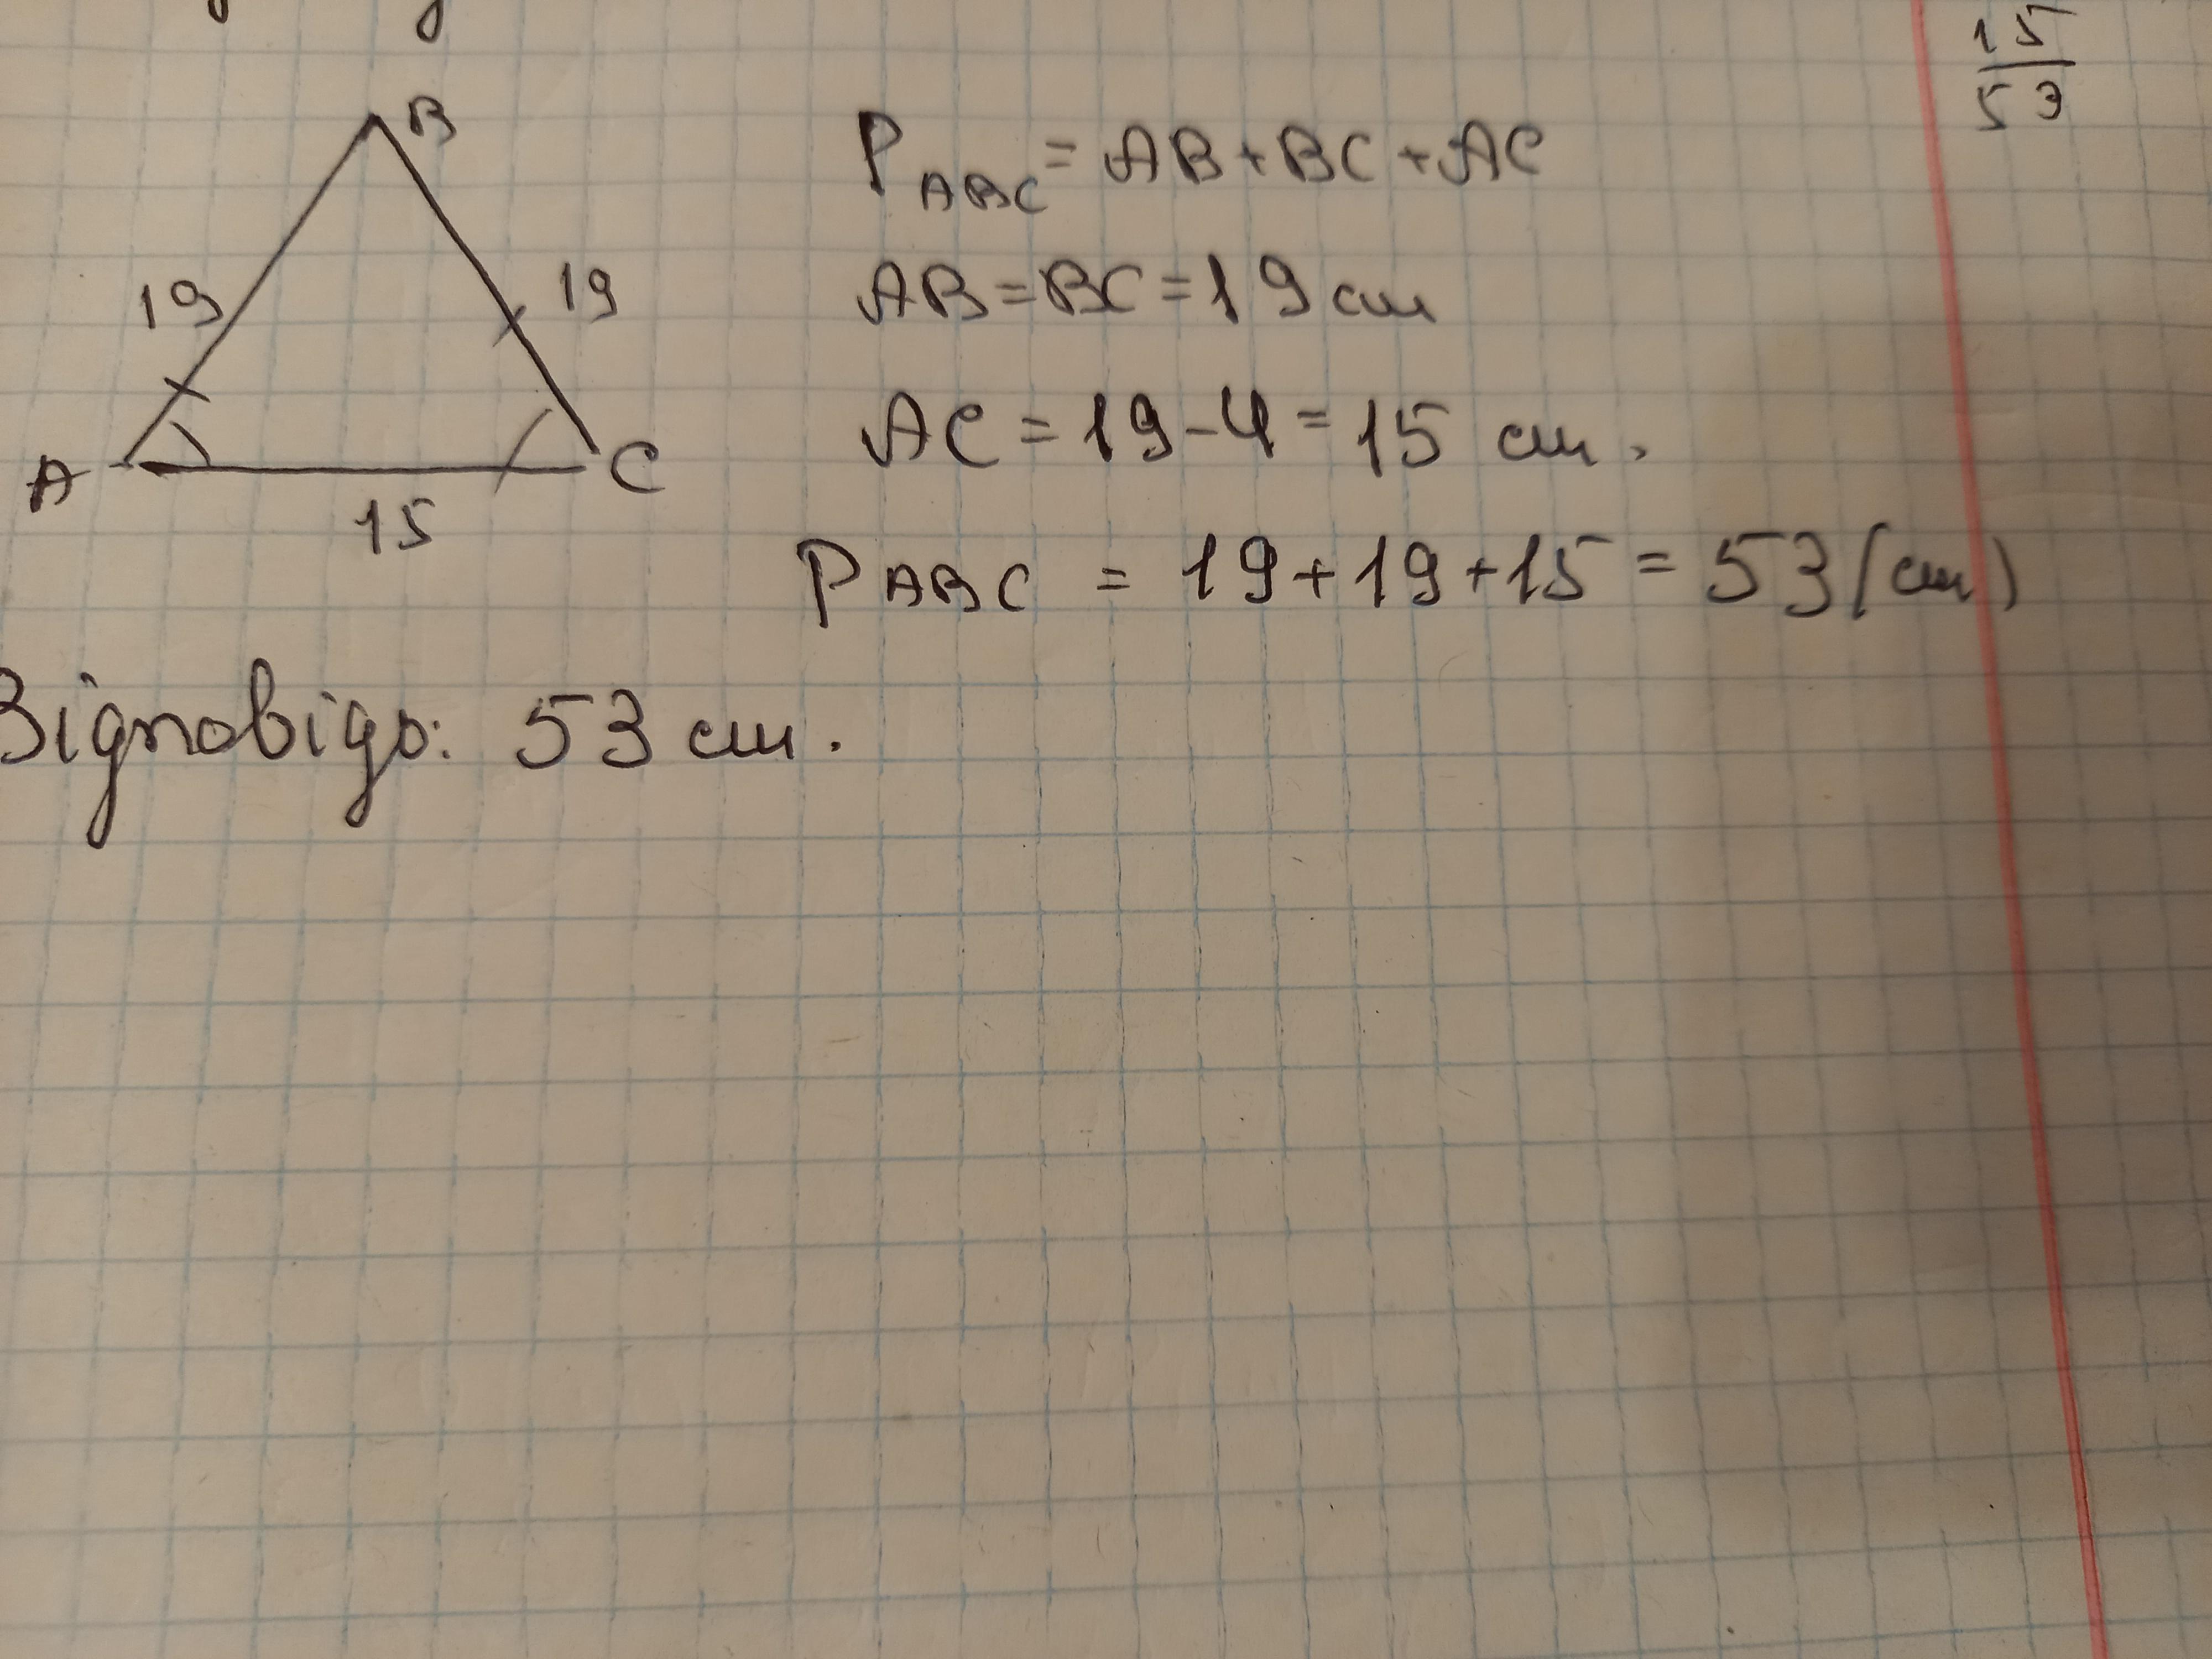 15
53
B
19
19
A
C
15
P ABC = AB + BC + AC
AB = BC = 19 см
AC = 19 - 4 = 15 см.
P ABC = 19 + 19 + 15 = 53 (см)
Відповідь: 53 см.